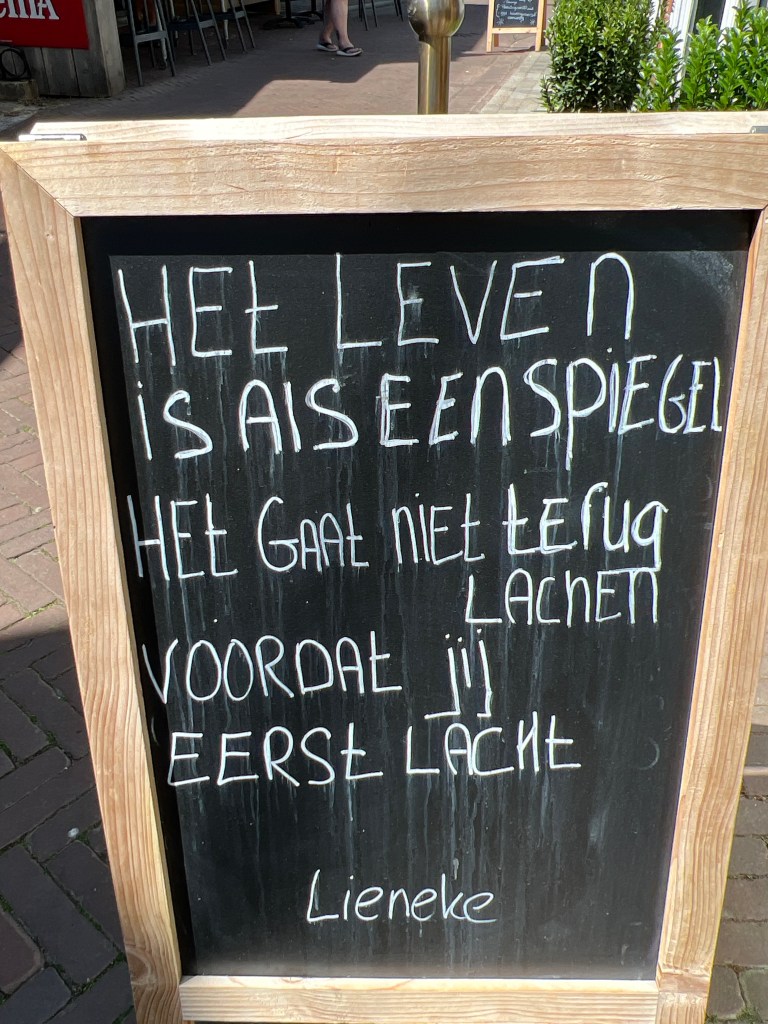 HEt LEVEn
iS AlS EEn SPiEGEL
HEt GAAt niEt tErug
LACHEn
VOORDAt jij
EERSt LACHt
Lieneke